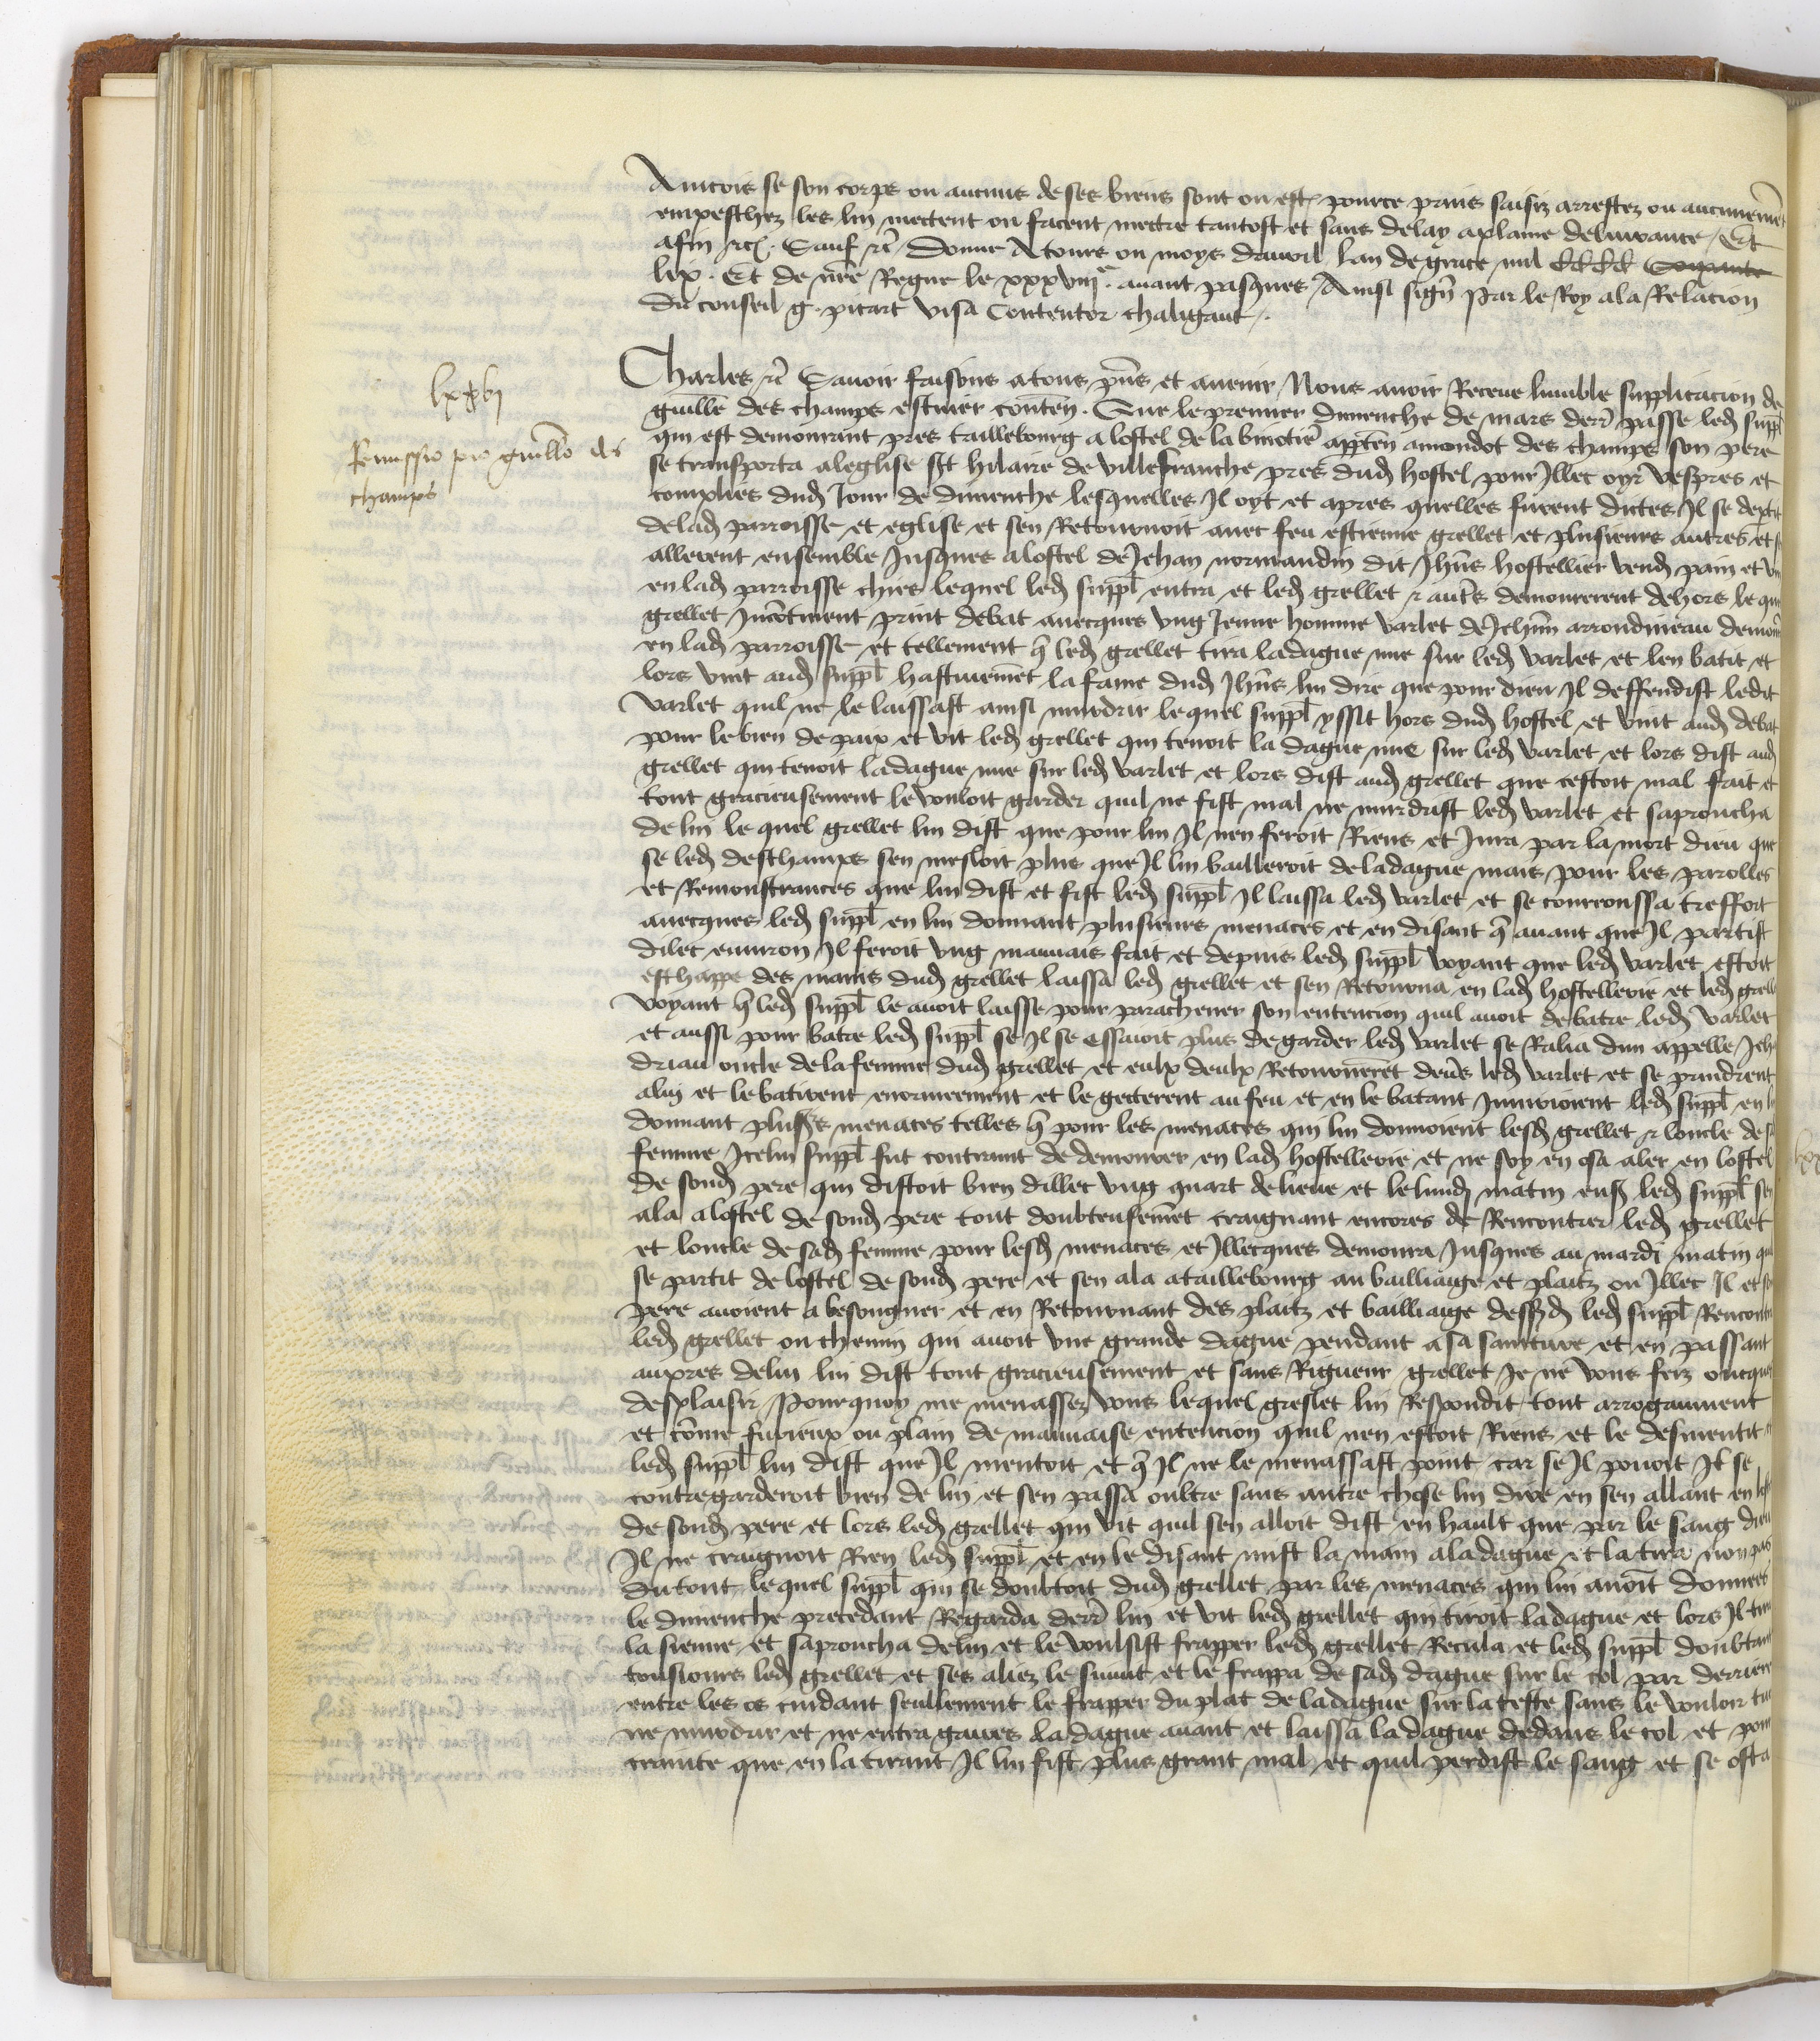 Aincois se son corps ou aucuns de ses biens sont ou est pource prins saisiz arrestez ou aucunemẽt
empeschez les lui mectent ou facent mectre tantost et sans delay a plaine delivrance / Et
afin &c. Sauf &c. Donne A tours ou moys davril lan de grace mil cccc Soixante
lix. Et de nr̃e Regne le xxxviij.e avant pasques / Ainsi signẽ Par le Roy a la Relacion
du conseil g. picart visa Contentor chaligaut /.
lxxvj
Remissio pro guillo des
champs
Charles &c. Savoir faisons a tous pñs et avenir / Nous avoir Receue lumble supplicacion de
guille des champs esc̃uier conteñ. Que le premier dimenche de mars derr̃ passe led suppl
qui est demourant pres taillebourg a lostel de la apparteñ a mondot des champs son pere
se transporta a leglise st hilaire de villefranche pres dud hostel pour Illec oyr vespres et
complies dud Jour de dimenche lesquelles Il oyt et apres quelles furent dictes Il se
de lad parroisse et eglise et sen Retournoit avec feu estienne grellet et plusieurs autres et
allerent ensemble Jusques a lostel de Jehan normandin dit Jhñs hostellier vend pain et vin
en lad parroisse chies lequel led suppl entra et led grellet & autr̃s demourerent dehors le quel
grellet Incõtinent print debat avecques ung Jeune homme varlet de Jehñ arrondineau demour̃
en lad parroisse et tellement q̃ led grellet tira la dague nue sur led varlet et len batit et
lors vint aud suppl hastivemẽt la fame dud Jhñs lui dire que pour dieu Il deffendist ledit
varlet quil ne le laissast ainsi murdrir lequel suppl yssit hors dud hostel et vint aud debat
pour le bien de paix et vit led grellet qui tenoit la dague nue sur led varlet et lors dist aud
grellet qui tenoit la dague nue sur led varlet et lors dist aud grellet que cestoit mal fait et
tout gracieusement le vouloit garder quil ne fist mal ne murdrist led varlet et saproucha
de lui le quel grellet lui dist que pour lui Il nen feroit Riens et Jura par la mort dieu que
se led deschamps sen mesloit plus que Il lui bailleroit de la dague mais pour les parolles
et Remonstrances que lui dist et fist led suppl Il laissa led varlet et se courroussa tresfort
avecques led suppl en lui donnant plusieurs menaces et en disant q̃ avant que Il partist
dilec environ Il feroit ung mauvais fait et depuis led suppl voyant que led varlet estoit
eschappe des mains dud grellet laissa led grellet et sen Retourna en lad hostellerie et led grell
voyant q̃ led suppl le avoit laisse pour parachever son entencion quil avoit de batre led varlet
et aussi pour batre led suppl se Il se essaioit plus de garder led varlet se Ralia dun appelle Jeh
driau oncle de la femme dud grellet et eulx deulx Retournerẽt devs̃ led varlet et se prindrent
a lui et le batirent enormement et le gecterent au feu et en le batant Injurioient led suppl en lui
donnant plusrs̃ menaces telles q̃ pour les menaces qui lui donnoient lesd grellet & loncle de sa
femme Icelui suppl fut contraint de demourer en lad hostellerie et ne soy en osa aler en lostel
de sond pere qui distoit bien dillec ung quart de lieue et le lundi matin ens̃ led suppl sen
ala a lostel de sond pere tout doubteusemẽt craignant encores de Rencontrer led grellet
et loncle de sad femme pour lesd menaces et Illecques demoura Jusques au mardi matin quil
se partit de lostel de sond pere et sen ala a taillebourg au bailliaige et plaitz ou Illec Il et son
pere avoient a besongner et en Retournant des plaitz et bailliaige dessd led suppl Rencontra
led grellet ou chemin qui avoit une grande dague pendant a sa sainture et en passant
aupres de lui lui dist tout gracieusement et sans Rigueur grellet Je ne vous feiz oncques
desplaisir Pourquoy me menassez vous lequel greslet lui Respondit tout arrogaument
et cõme furieux ou plain de mauvaise entencion quil nen estoit Riens et le desmentit et
led suppl lui dist que Il mentoit et q̃ Il ne le menassast point car se Il povoit Il se
contregarderoit bien de lui et sen passa oultre sans autre chose lui dire en sen allant en lostel
de sond pere et lors led grellet qui vit quil sen alloit dist en hault que par le sang dieu
Il ne craignoit Rien led suppl et en le disant mist la main a la dague et la tira non pas
du tout lequel suppl qui se doubtoit dud grellet par les menaces qui lui avoit donnees
le dimenche precedant Regarda derr̃ lui et vit led grellet qui tiroit la dague et lors Il tira
la sienne et saproucha de lui et le voulsist frapper led grellet Recula et led suppl doubtant
tousjours led grellet et ses aliez le suivit et le frappa de sad dague sur le col par derriere
entre les os cuidant seullement le frapper du plat de la dague sur la teste sans le vouloir tuer
ne murdrir et ne entra gaires la dague avant et laissa la dague dedans le col et pour
crainte que en la tirant Il lui fist plus grant mal et quil perdist le sang et se osta